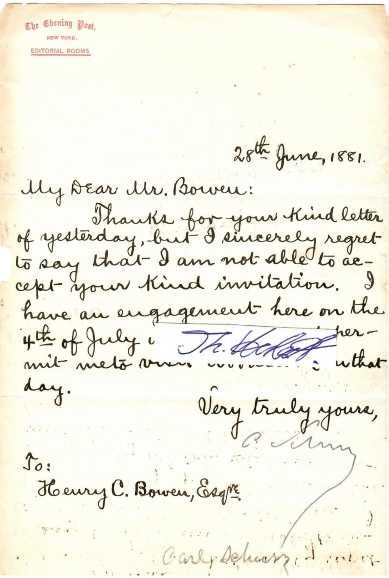 The Evening Post,
NEW YORK.
EDITORIAL ROOMS.
28th June, 1881.
My Dear Mr. Bowen:
Thanks for your kind letter
of yesterday, but I sincerely regret
to say that I am not able to ac-
cept your kind invitation. I
have an engagement here on the
4th of July per-
mit me to that
day.
Very truly yours,
C. Schurz
To:
Henry C. Bowen, Esqre.
Carl Schurz